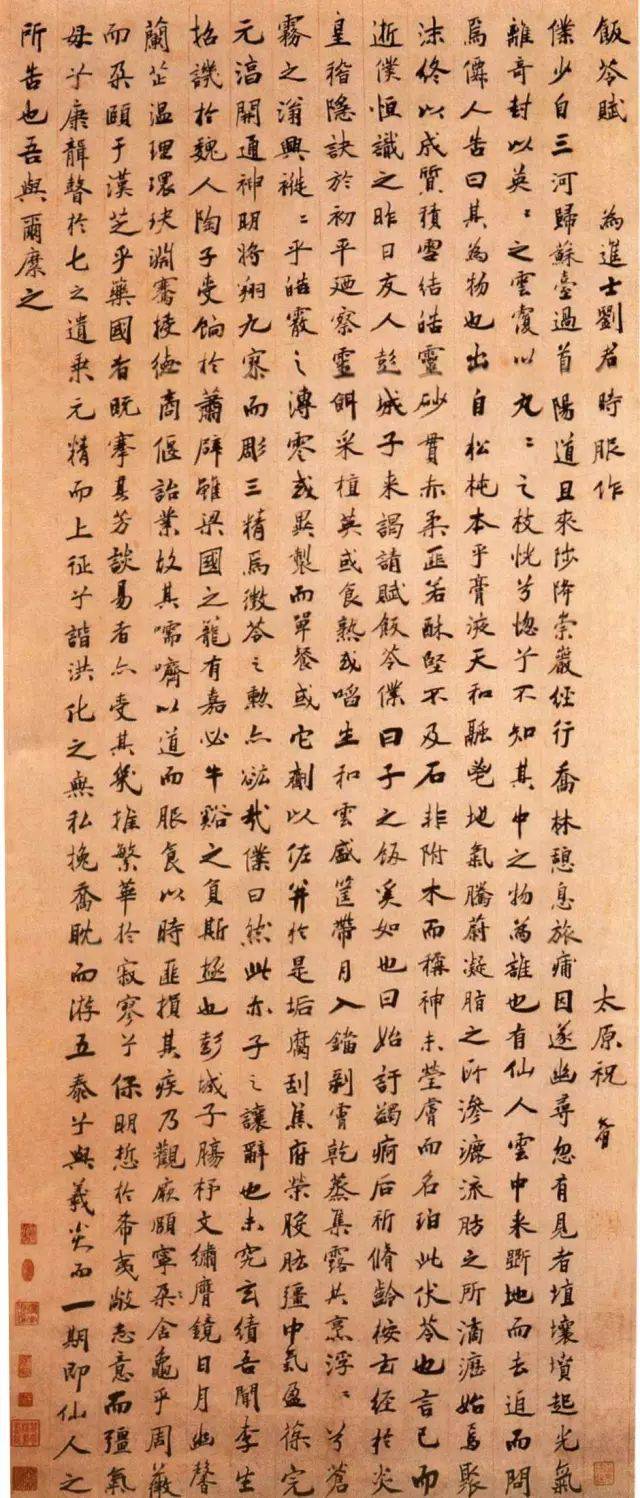 飯苓賦 為進士劉君時服作 太原祝
僕少自三河歸蘇臺過首陽道且來陟降崇巖經行喬林憩息旅痡因遂幽尋忽有見者埴壤墳起光氣
離奇封以英〻之雲覆以丸〻之枝恍兮惚兮不知其中之物為誰也有仙人雲中来斲地而去追而問
焉僊人告曰其為物也出自松杶本乎膏液天和融乎地氣騰蔚凝脂之所滲漉流肪之所滴瀝始焉聚
沫終以成質積雪結皓靈砂貫赤柔匪若酥堅不及石非附木而稱神未瑩膚而名珀此伏苓也言已而
逝僕恒識之昨日友人彭城子来謁請賦飯苓僕曰子之飯奚如也曰始訝蠲痾后祈脩齡按玄経於炎
皇稽隱訣於初平廼察靈餌采植英或食熟或啗生和雲盛筐帶月入鐺剥膚乾蒸集露共烹浮〻兮蒼
霧之滃興褷〻乎皓霰之漙零或異製而單餐或它劑以佐并於是垢腐刮焦府榮胺肱彊中氣盈葆完
元滀開通神明將翔九寨而彫三精焉微苓之勲亦竑哉僕曰然此亦子之讓辭也未究玄績吾聞李生
招譏於魏人陶子受餉於蕭辟雖梁國之籠有嘉必牛谿之負斯極也彭城子腸杼文繡膺鏡日月幽馨
蘭芷温理環玦淵騫挍徳商偃詒業故其嚅嚌以道而服食以時匪損其疾乃觀厥頤寧朶舍龜乎周薇
而朶頤于漢芝乎藥國者既搴其芳談易者亦受其幾推繁華於寂寥兮保明悊於希夷敝志意而彊氣
母兮康韻聲於七之遺乘元精而上征兮諧洪化之無私挽喬耽而游五泰兮與羲炎而一期即仙人之
所告也吾與爾糜之